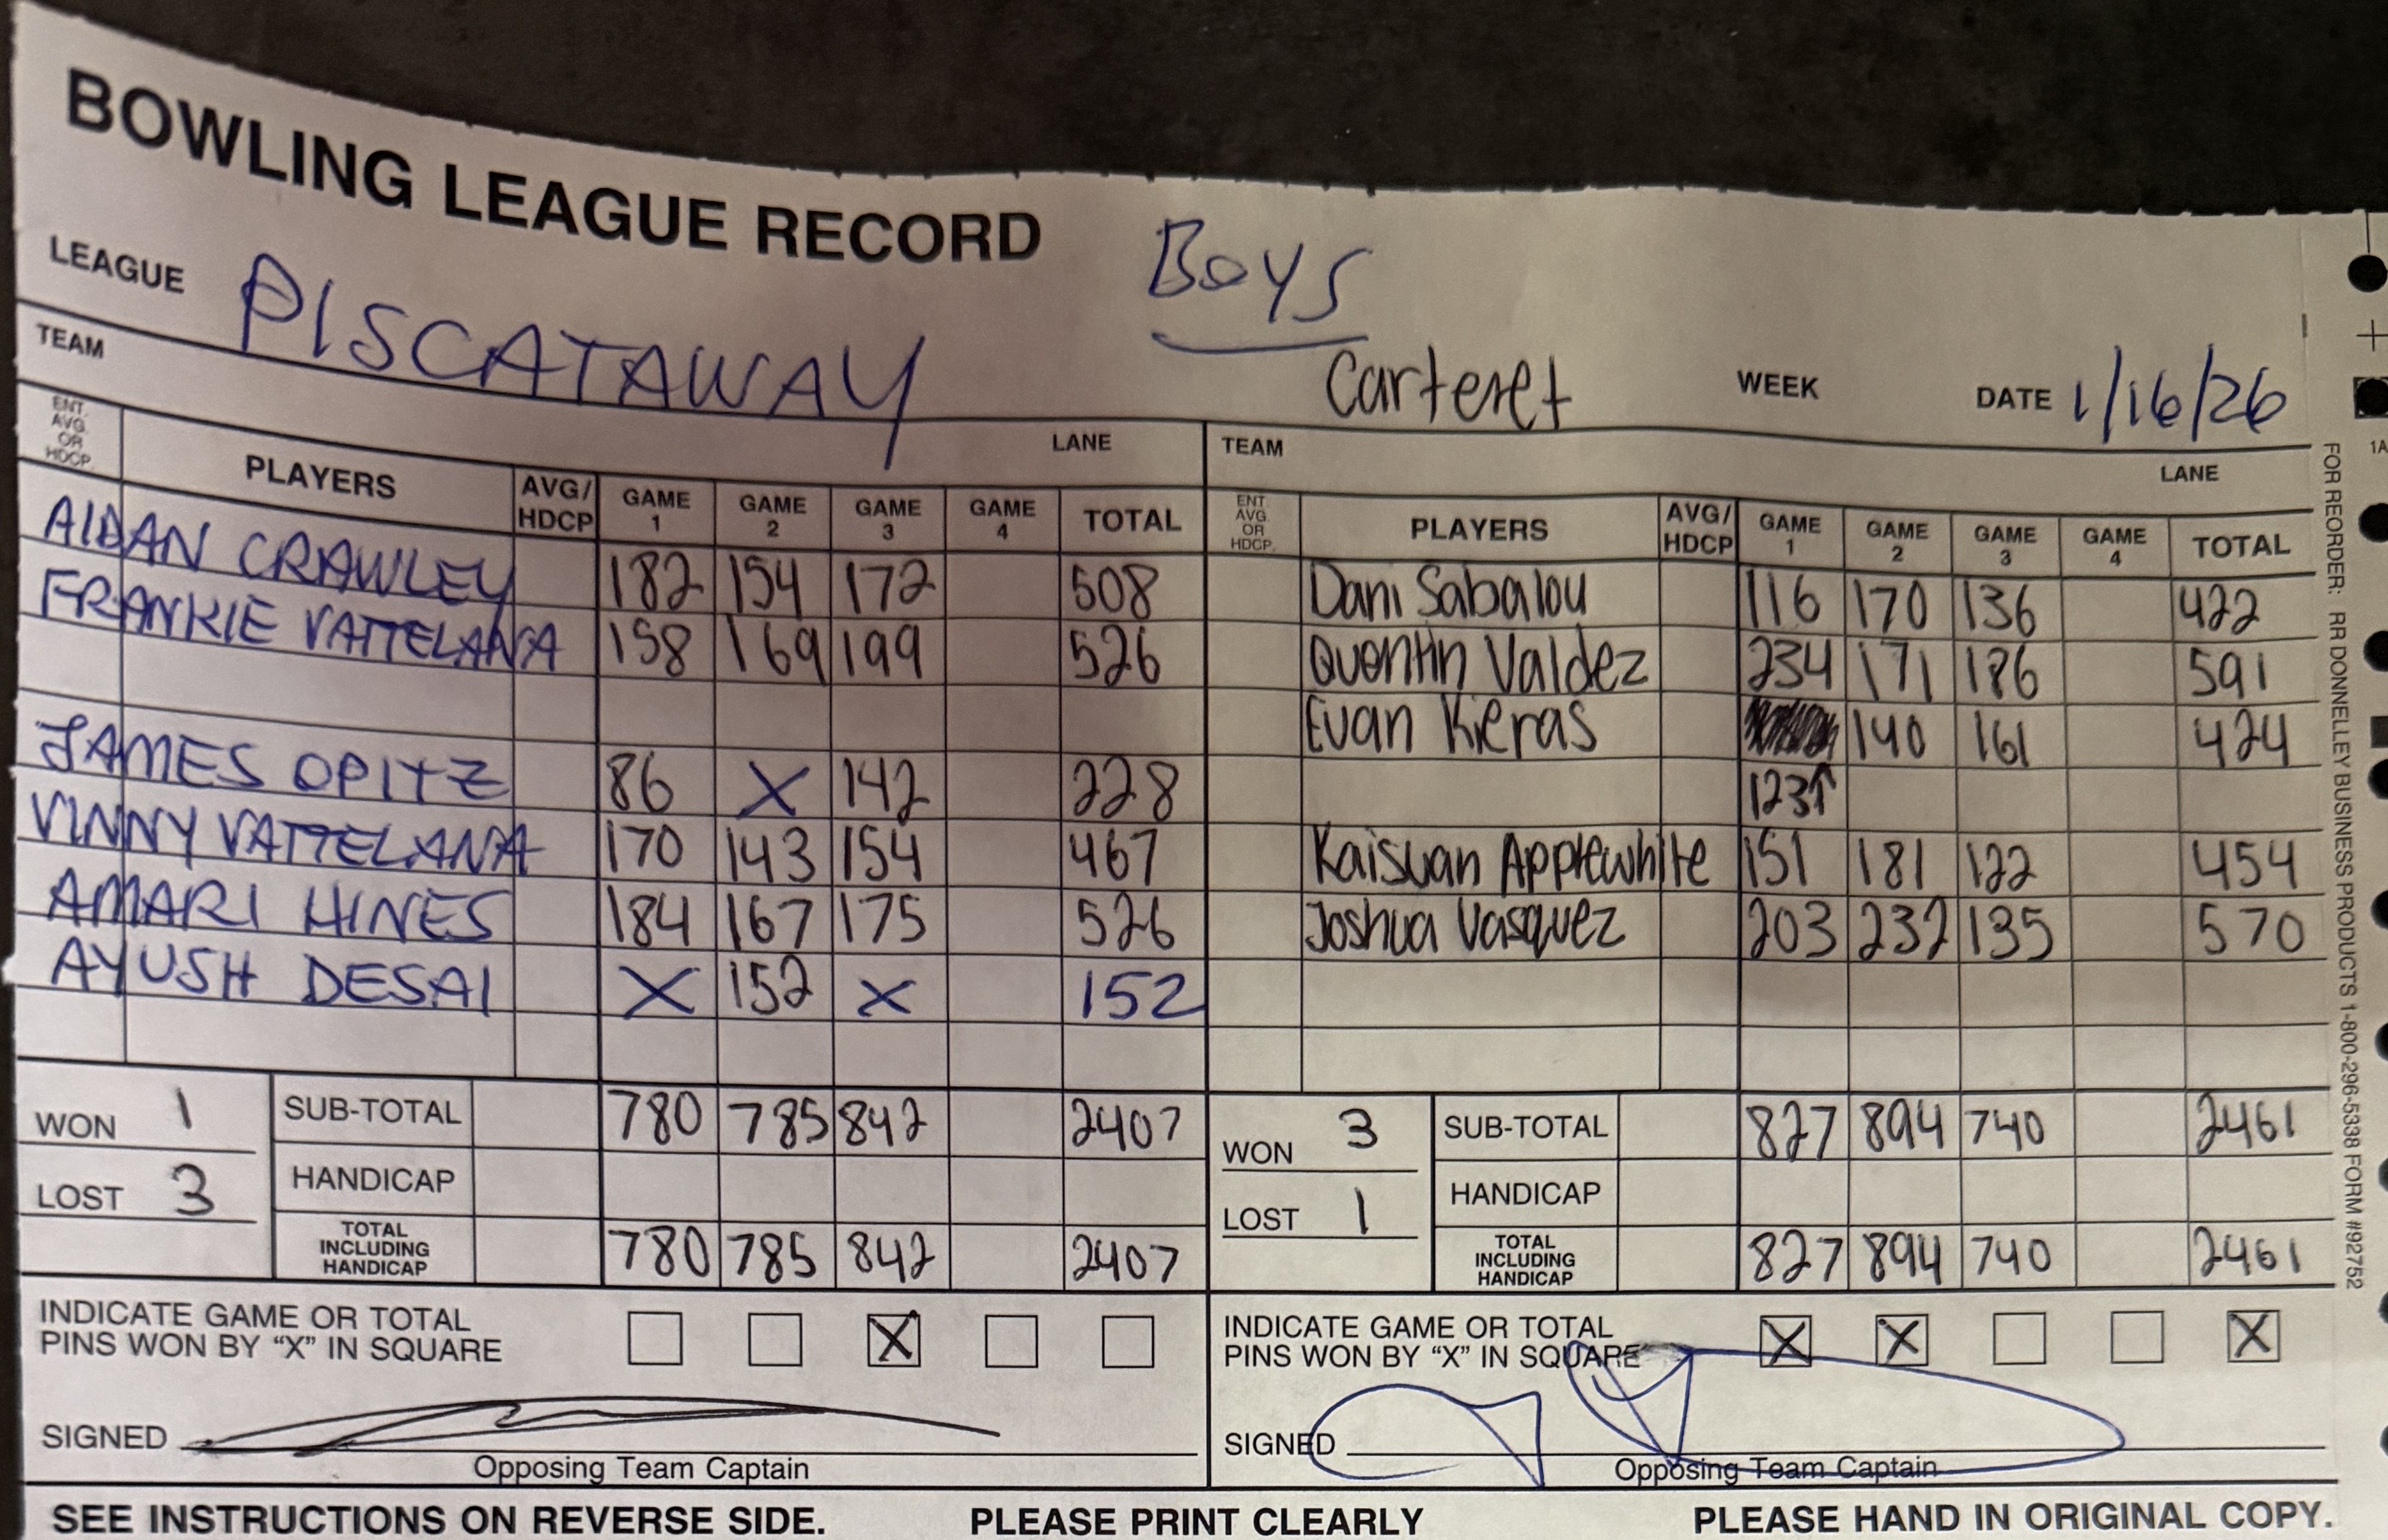 BOWLING LEAGUE RECORD
Boys
LEAGUE PISCATAWAY Carteret WEEK DATE 1/16/26
TEAM LANE TEAM LANE
ENT. AVG. OR HDCP. PLAYERS AVG/ HDCP GAME 1 GAME 2 GAME 3 GAME 4 TOTAL ENT. AVG. OR HDCP. PLAYERS AVG/ HDCP GAME 1 GAME 2 GAME 3 GAME 4 TOTAL
AIDAN CRAWLEY 182 154 172 508 Dani Sabalou 116 170 136 422
FRANKIE VATTELANA 158 169 199 526 Quentin Valdez 234 171 186 591
Evan Kieras 140 161 424
JAMES OPITZ 86 X 142 228 123↑
VINNY VATTELANA 170 143 154 467 Kaisuan Applewhite 151 181 122 454
AMARI HINES 184 167 175 526 Joshua Vasquez 203 232 135 570
AYUSH DESAI X 152 X 152
WON 1 SUB-TOTAL 780 785 842 2407 WON 3 SUB-TOTAL 827 894 740 2461
LOST 3 HANDICAP LOST 1 HANDICAP
TOTAL INCLUDING HANDICAP 780 785 842 2407 TOTAL INCLUDING HANDICAP 827 894 740 2461
INDICATE GAME OR TOTAL INDICATE GAME OR TOTAL
PINS WON BY “X” IN SQUARE X PINS WON BY “X” IN SQUARE X X X
SIGNED SIGNED
Opposing Team Captain Opposing Team Captain
SEE INSTRUCTIONS ON REVERSE SIDE. PLEASE PRINT CLEARLY PLEASE HAND IN ORIGINAL COPY.
FOR REORDER: RR DONNELLEY BUSINESS PRODUCTS 1-800-296-5338 FORM #92752
1A